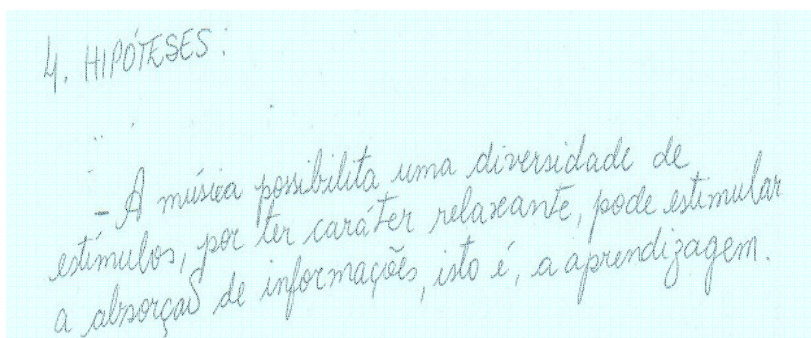 4. HIPÓTESES:
- A música possibilita uma diversidade de
estímulos, por ter caráter relaxante, pode estimular
a absorção de informações, isto é, a aprendizagem.